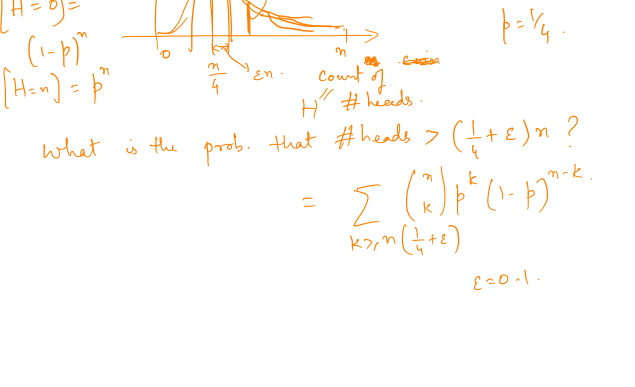 [H = 0] =
(1-p)^n
[H=n] = p^n
p = 1/4 .
0
n/4
εn .
n
count of
H
# heads .
What is the prob. that # heads > (1/4 + ε) n ?
= ∑ k≥n(1/4+ε) (n k) p^k (1-p)^n-k .
ε=0.1 .